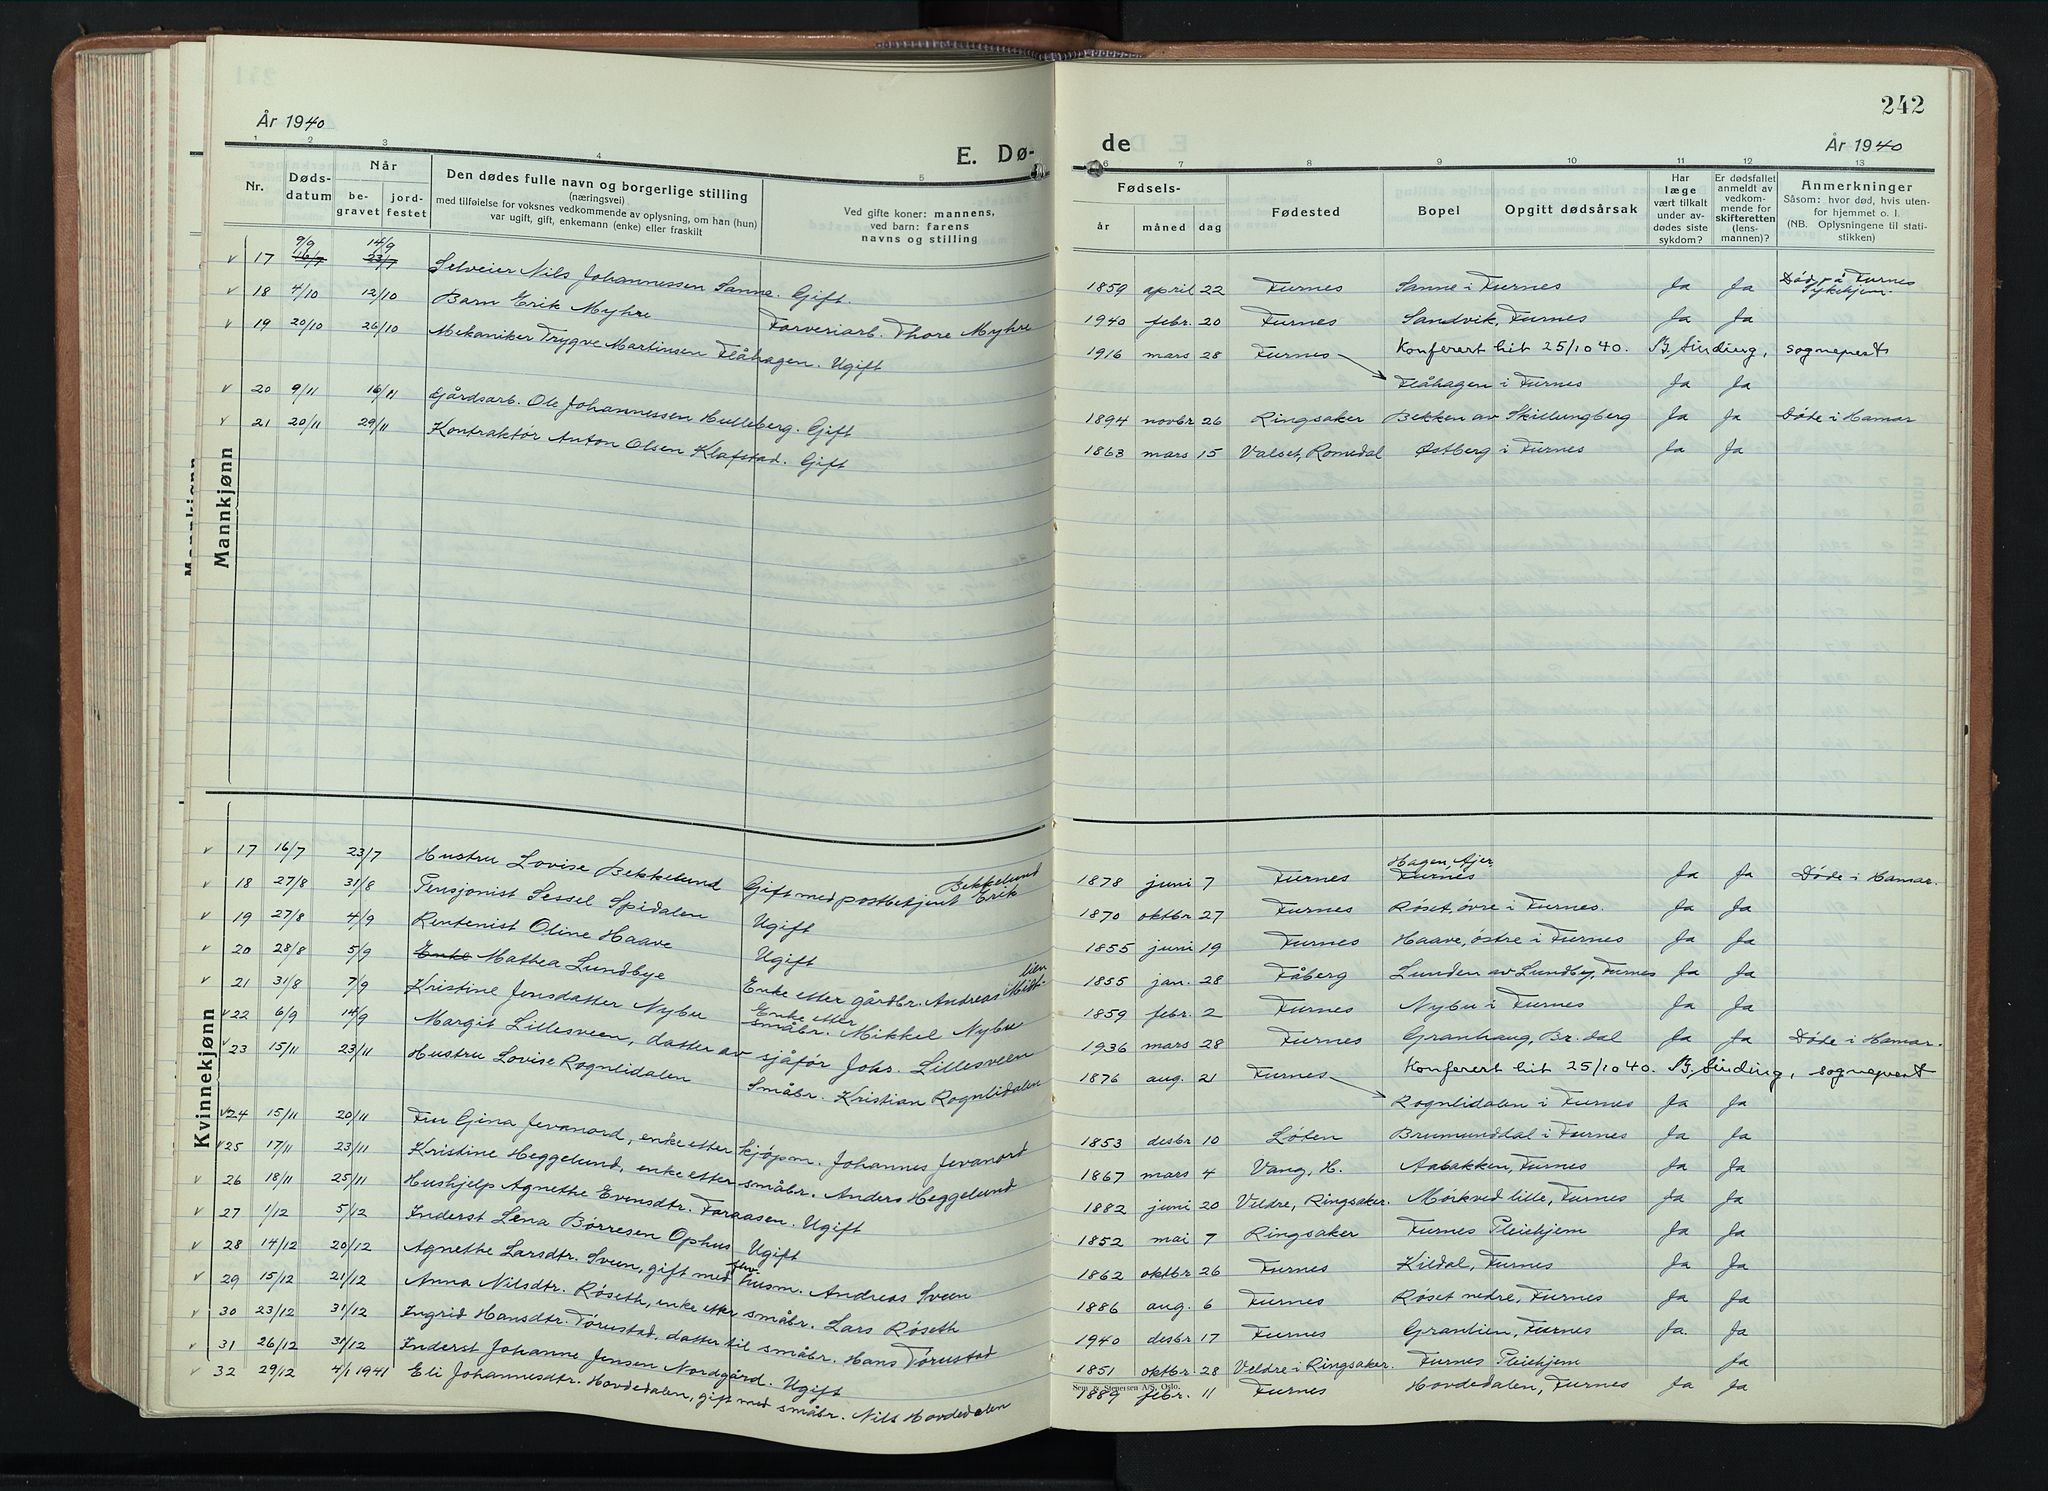 242
År 1940
E. Dø-
de
År 1940
1 2 3 4 5 6 7 8 9 10 11 12 13
Nr.
Døds-
datum
Når
be-
gravet
jord-
festet
Den dødes fulle navn og borgerlige stilling
(næringsvei)
med tilføielse for voksnes vedkommende av oplysning, om han (hun)
var ugift, gift, enkemann (enke) eller fraskilt
Ved gifte koner: mannens,
ved barn: farens
navns og stilling
Fødsels-
år måned dag
Fødested
Bopel
Opgitt dødsårsak
Har
læge
vært tilkalt
under av-
dødes siste
sykdom?
Er dødsfallet
anmeldt av
vedkom-
mende for
skifteretten
(lens-
mannen)?
Anmerkninger
Såsom: hvor død, hvis uten-
for hjemmet o. l.
(NB. Oplysningene til stati-
stikken)
Mannkjønn
Mannkjønn
v 17 9/9 16/7 14/9 23/7 Selveier Nils Johannessen Sanne. Gift. 1859 april 22 Furnes Sanne i Furnes Ja Ja Døde på Furnes Sykehjem.
v 18 4/10 12/10 Barn Erik Myhre Farveriarb. Thore Myhre 1940 febr. 20 Furnes Sandvik, Furnes Ja Ja
v 19 20/10 26/10 Mekaniker Trygve Martinsen Flåhagen. Ugift 1916 mars 28 Furnes Konferert hit 25/10 40. B. Sinding, sogneprest
Flåhagen i Furnes Ja Ja
v 20 9/11 16/11 Gårdsarb. Ole Johannessen Hulleberg. Gift 1894 novbr 26 Ringsaker Bekken av Skillungberg Ja Ja Døde i Hamar
v 21 20/11 29/11 Kontraktør Anton Olsen Klafstad. Gift 1863 mars 15 Valset, Romedal Østberg i Furnes Ja Ja
Kvinnekjønn
v 17 16/7 23/7 Hustru Lovise Bekkelund Gift med postbetjent Erik Bekkelund 1878 juni 7 Furnes Hagen, Ajer, Furnes Ja Ja Døde i Hamar.
v 18 27/8 31/8 Pensjonist Sessel Spidalen Ugift 1870 oktbr 27 Furnes Røset, øvre i Furnes. Ja Ja
v 19 27/8 4/9 Rentenist Oline Haave Ugift 1855 juni 19 Furnes Haave, østre i Furnes Ja Ja
v 20 28/8 5/9 Enke Mathea Lundbye Enke etter gårdbr. Andreas Midt-lien 1855 jan. 28 Fåberg Lunden av Lundby, Furnes Ja Ja
v 21 31/8 7/9 Kristine Jensdatter Nybu Enke etter småbr. Mikkel Nybu 1859 febr. 2 Furnes Nybu i Furnes Ja Ja
v 22 6/9 14/9 Margit Lillesveen, datter av sjåfør Johr. Lillesveen 1936 mars 28 Furnes Granhaug, Br.dal Ja Ja Døde i Hamar.
v 23 15/11 23/11 Hustru Lovise Rognlidalen Småbr. Kristian Rognlidalen 1876 aug. 21 Furnes Konferert hit 25/10 40. B. Sinding, sogneprest
Rognlidalen i Furnes Ja Ja
v 24 15/11 20/11 Fru Gina Jevanord, enke etter kjøpm. Johannes Jevanord 1853 desbr 10 Løten Brumunddal i Furnes Ja Ja
v 25 17/11 23/11 Kristine Heggelund, enke etter småbr. Anders Heggelund 1867 mars 4 Vang, H. Aabakken, Furnes Ja Ja
v 26 18/11 25/11 Hushjelp Agnethe Evensdtr. Faraasen. Ugift 1882 juni 20 Veldre, Ringsaker. Mørkved lille, Furnes Ja Ja
v 27 1/12 5/12 Inderst Lena Børresen Ophus Ugift 1852 mai 7 Ringsaker Furnes Pleiehjem Ja Ja
v 28 14/12 20/12 Agnethe Larsdtr. Sveen, gift med husm. Andreas Sveen 1862 oktbr 26 Furnes Kildal, Furnes Ja Ja
v 29 15/12 21/12 Anna Nilsdtr. Røseth, enke etter småbr. Lars Røseth 1886 aug. 6 Furnes Røset nedre, Furnes Ja Ja
v 30 23/12 31/12 Ingrid Hansdtr. Tørustad, datter til småbr. Hans Tørustad 1940 desbr 17 Furnes Granlien, Furnes Ja. Ja
v 31 26/12 31/12 Inderst Johanne Jensen Nordgård. Ugift 1851 oktbr. 28 Veldre i Ringsaker. Furnes Pleiehjem Ja
v 32 29/12 4/1 1941 Eli Johannesdtr. Hovdedalen, gift med småbr. Nils Hovdedalen 1889 febr. 11 Furnes Hovdedalen, Furnes Ja Ja
Sem & Stenersen A/S, Oslo.